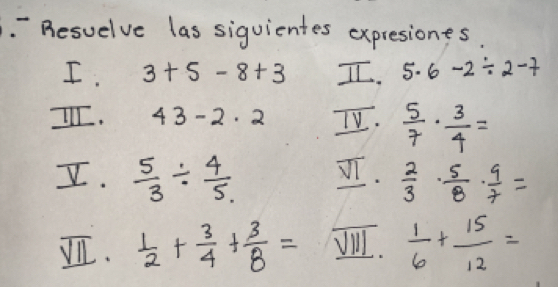 .- Resuelve las siguientes expresiones.
I. 3+5-8+3 II. 5·6-2÷2-7
III. 43-2·2 IV. 5/7 · 3/4 =
V. 5/3 ÷ 4/5. VI. 2/3 · 5/8 · 9/7 =
VII. 1/2 + 3/4 + 3/8 = VIII. 1/6 + 15/12 =